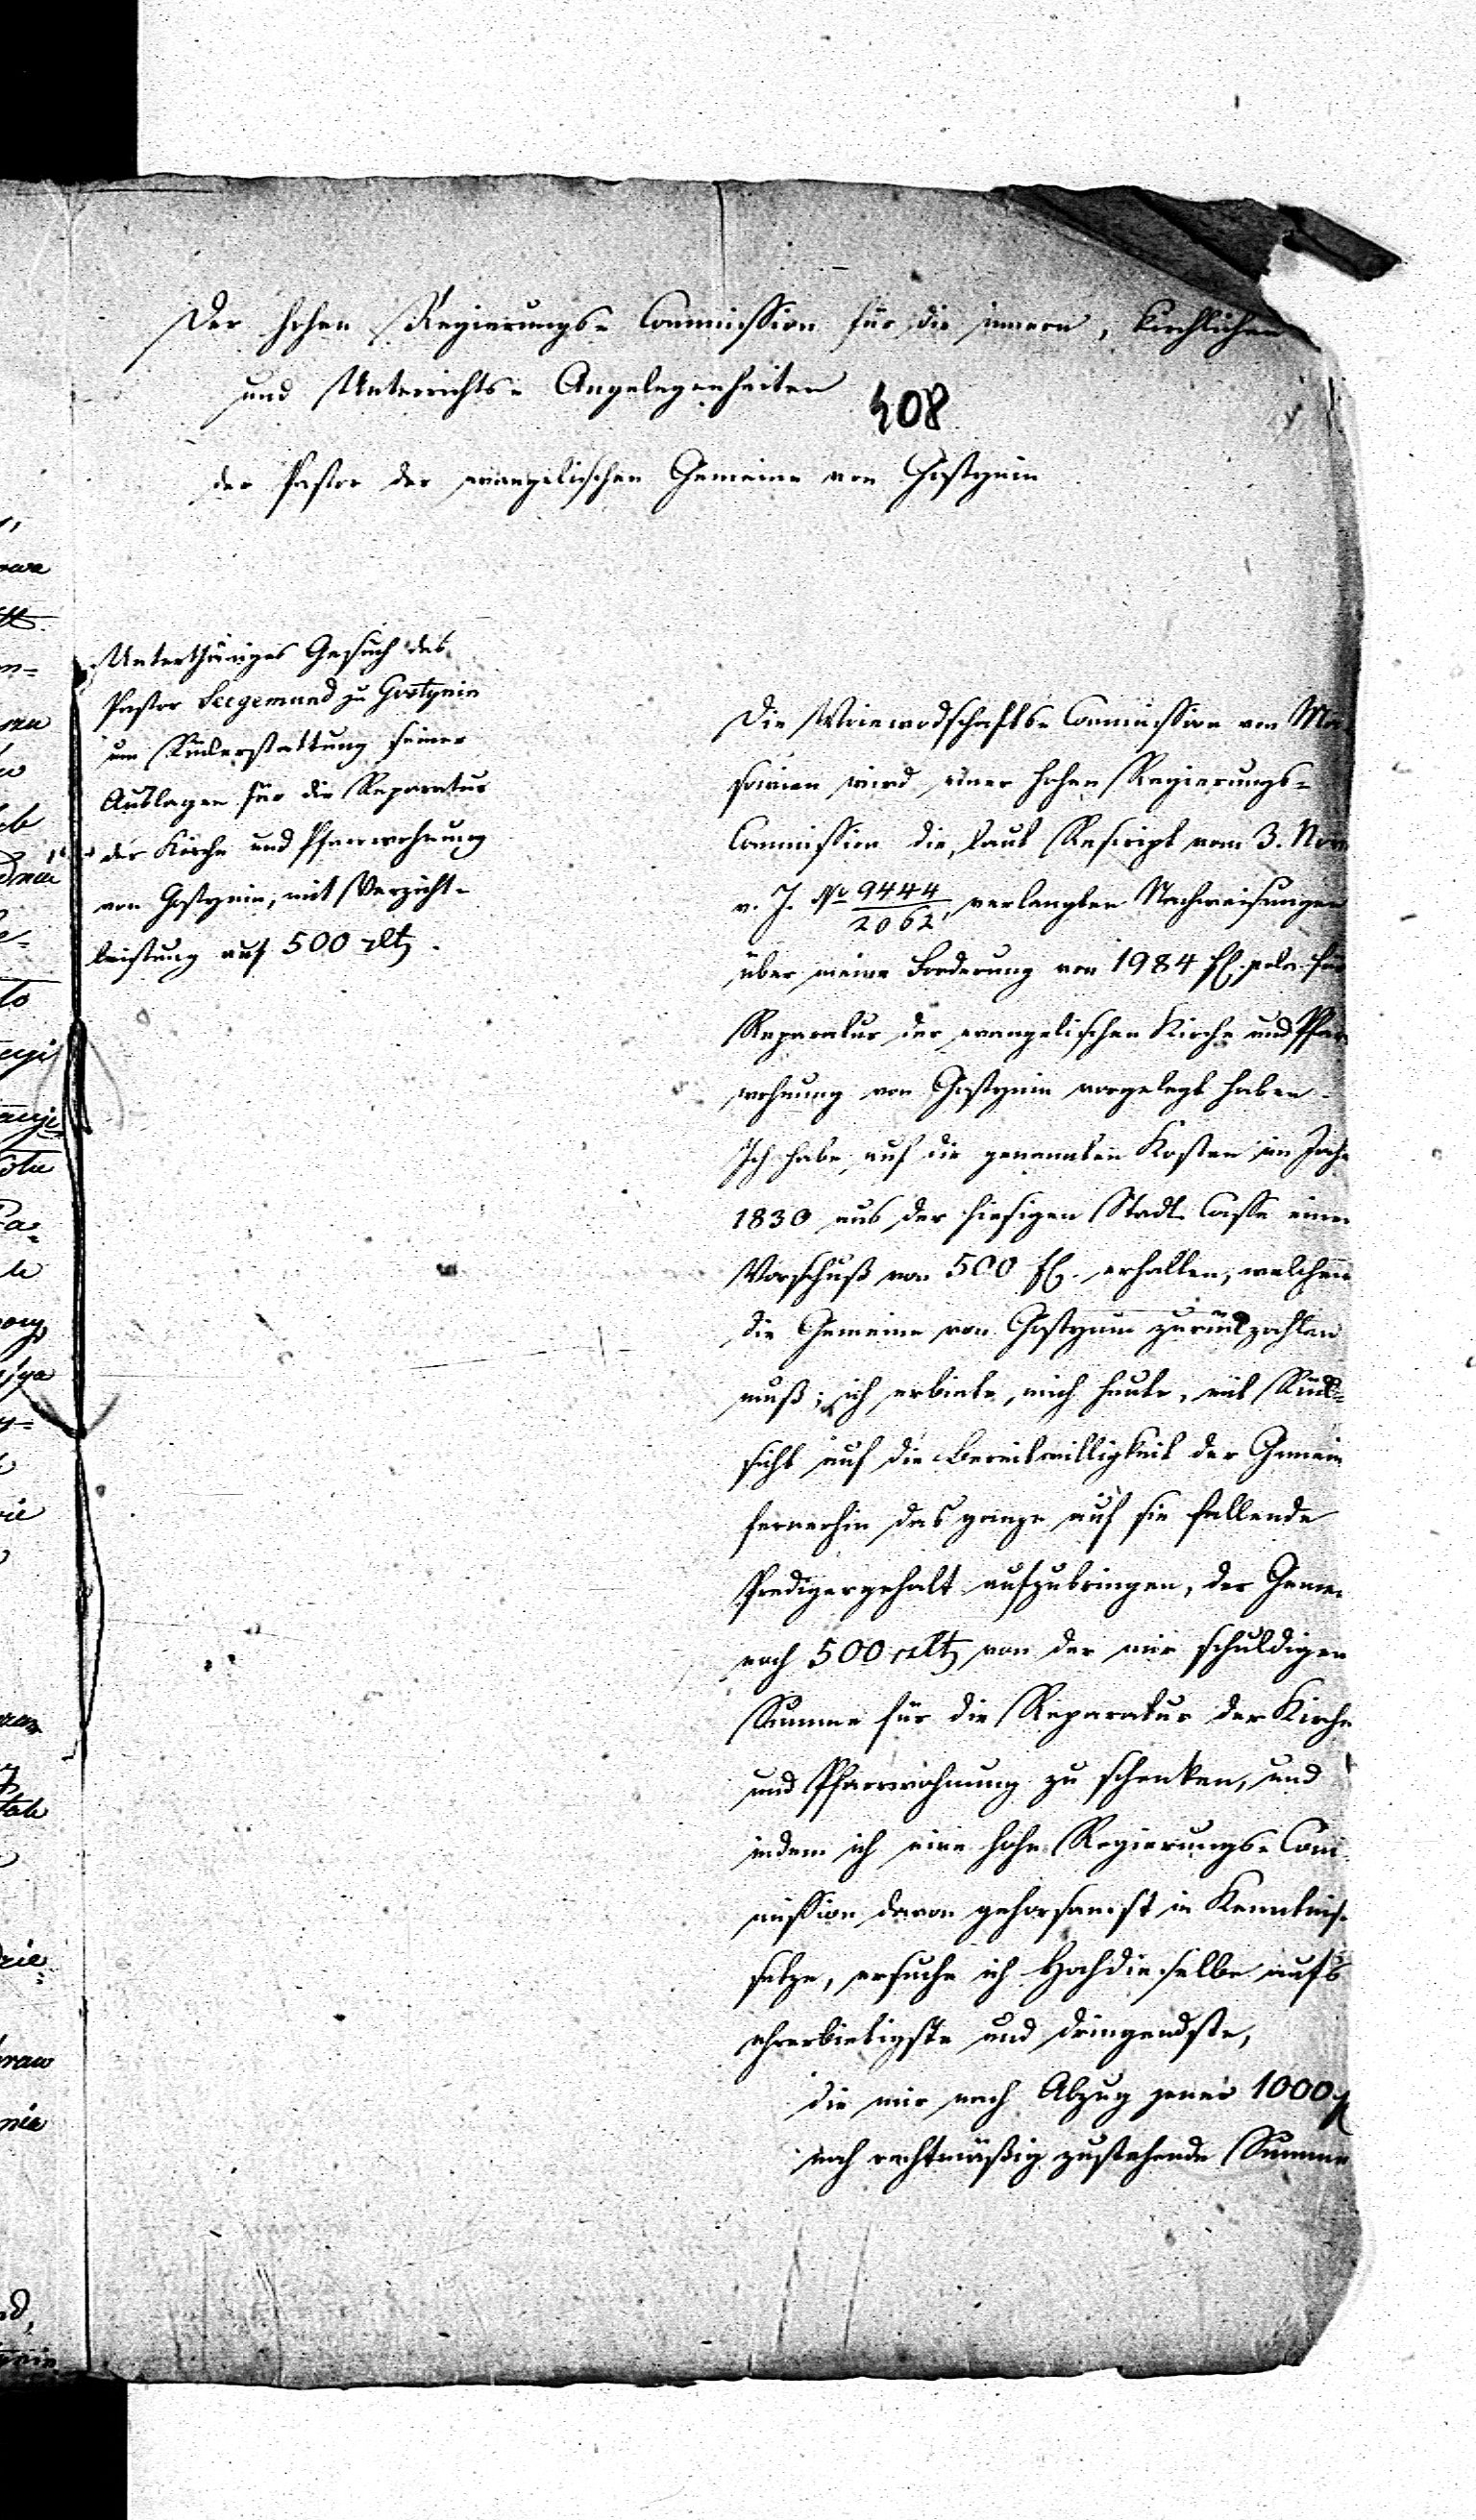 Der hohen Regierungs-Commission für die innern, kirchlichen
und Unterrichts-Angelegenheiten
408
der Pastor der evangelischen Gemeine von Gostynin
Unterthäniges Gesuch des
Pastor Seegemund zu Gostynin
um Rückerstattung seiner
Auslagen für die Reparatur
der Kirche und Pfarrwohnung
von Gostynin, mit Verzicht-
leistung auf 500 rlt.
Die Woiewodschafts-Commission von Ma
sovien wird einer hohen Regierungs=
Commission die, laut Rescript vom 3. Nov
v. J. No 9444/2062, verlangten Nachweisungen
über meine Forderung von 1984 fl. poln. für
Reparatur der evangelischen Kirche und Pfar
wohnung von Gostynin vorgelegt haben.
Ich habe auf die genannten Kosten im Jahr
1830 aus der hiesigen Stadt-Casse einen
Vorschuß von 500 fl. erhalten, welchen
die Gemeine von Gostynin zurückzahlen
muß; ich erbiete mich heute, mit Rück=
sicht auf die Bereitwilligkeit der Gemein
fernerhin das ganze auf sie fallende
Predigergehalt aufzubringen, der Geme
noch 500 rlt. von der mir schuldigen
Summe für die Reparatur der Kirche
und Pfarrwohnung zu schenken, und
indem ich eine hohe Regierungs-Com
mission davon gehorsamst in Kenntnis
setze, ersuche ich Hochdieselbe aufs
ehrerbietigste und dringendste,
die mir nach Abzug jener 1000 fl
noch rechtmäßig zustehende Summe